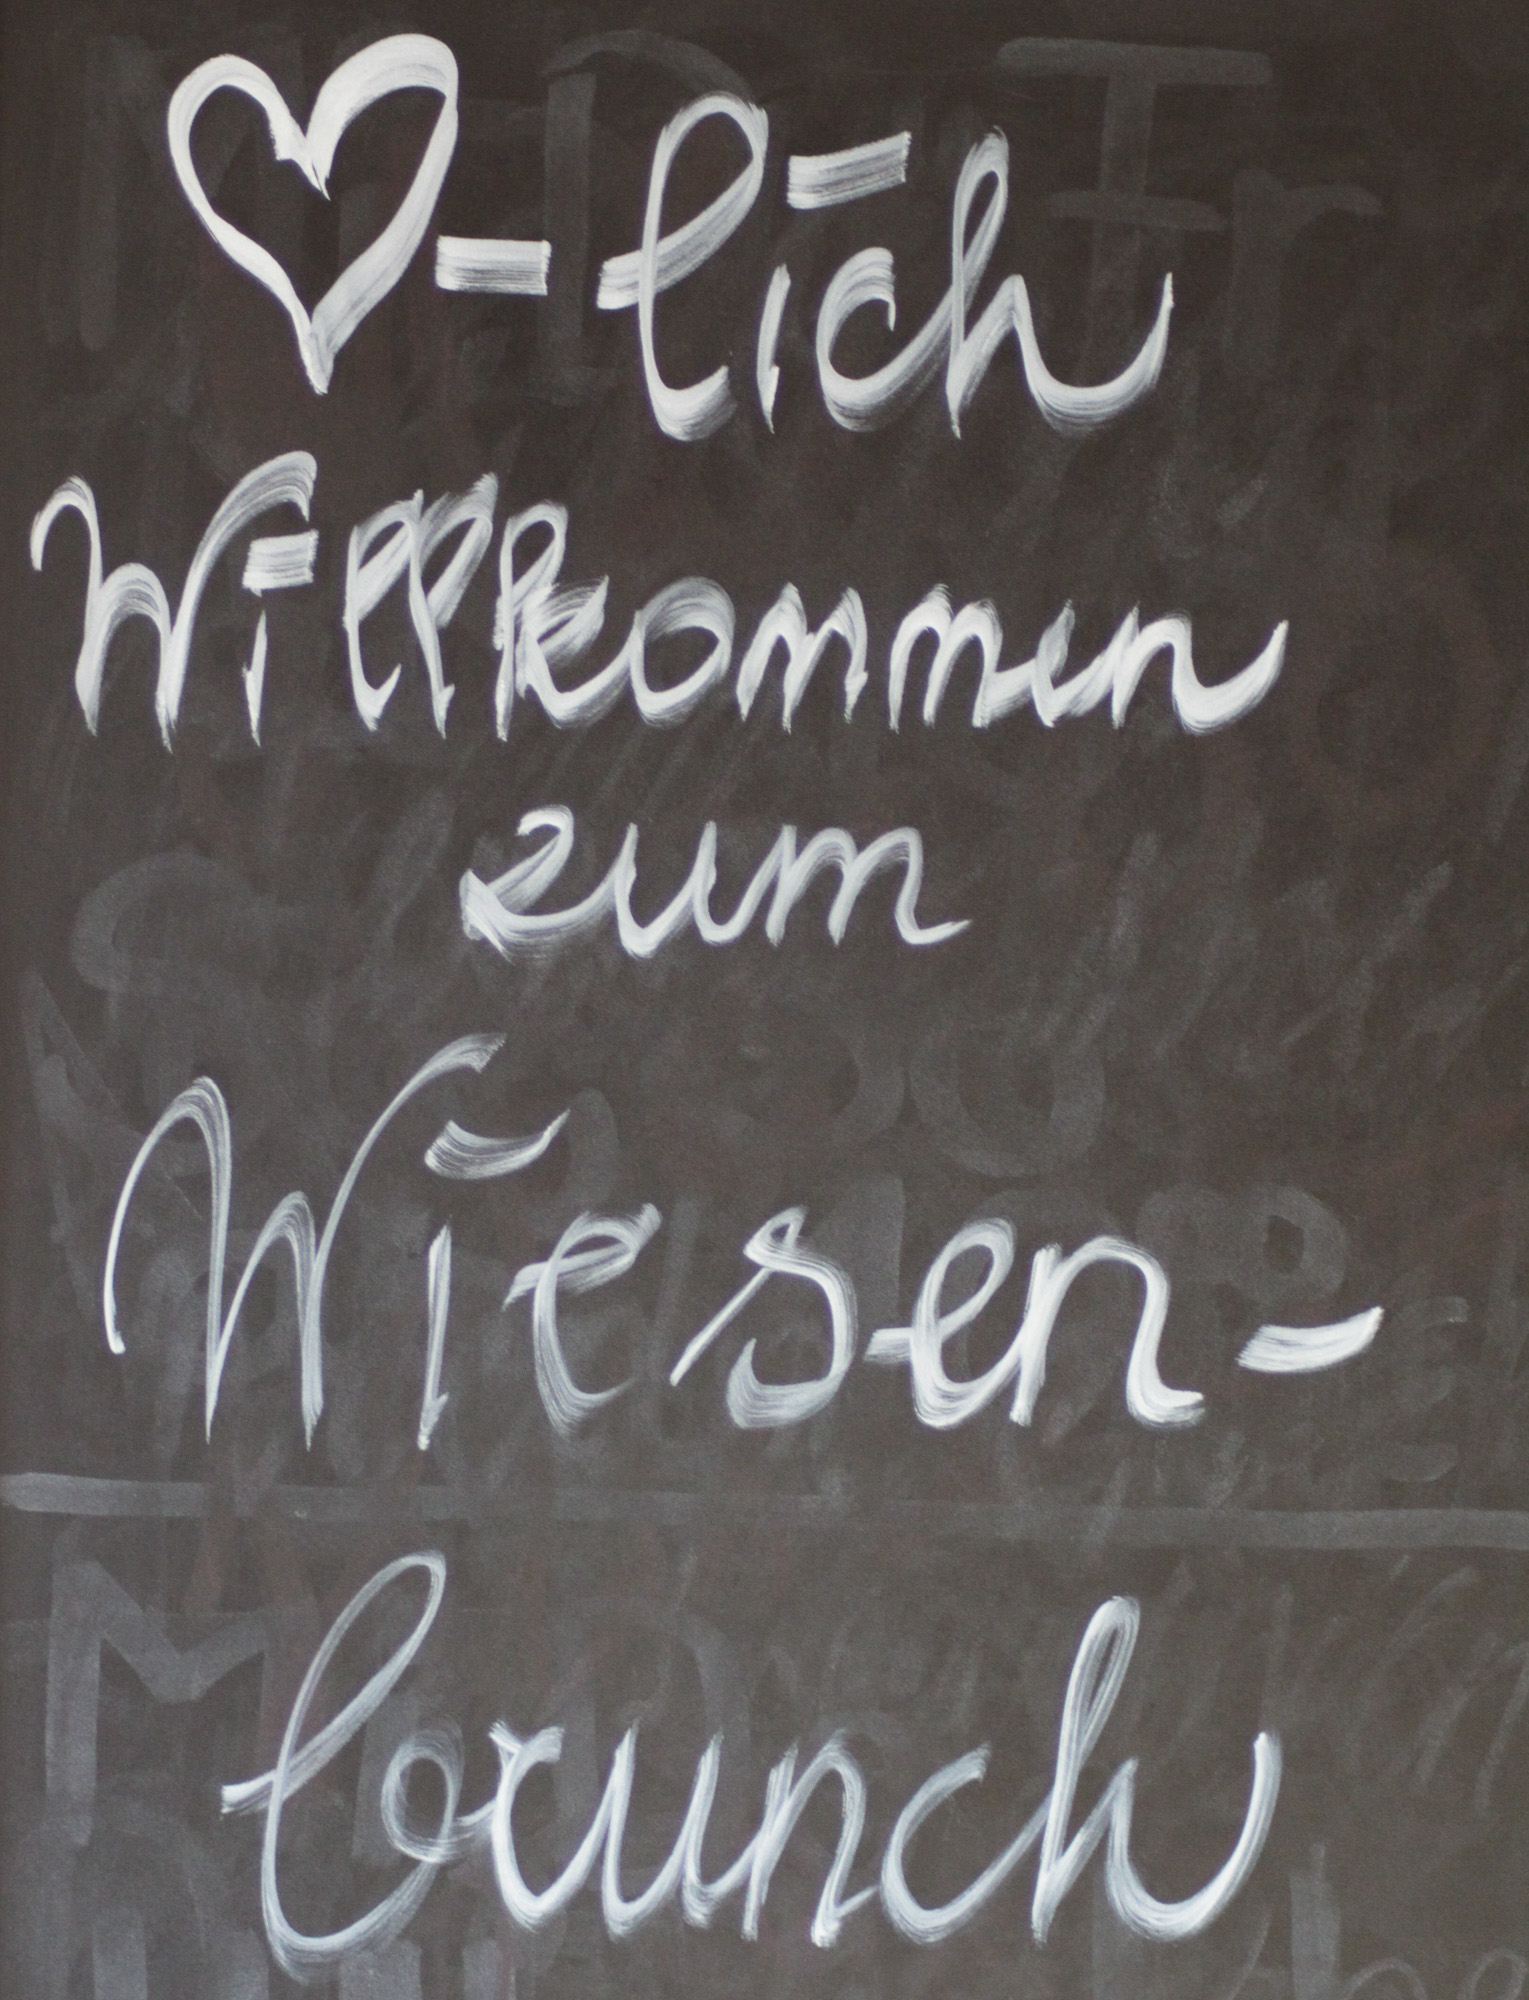 ♡-lich
Willkommen
zum
Wiesen-
brunch